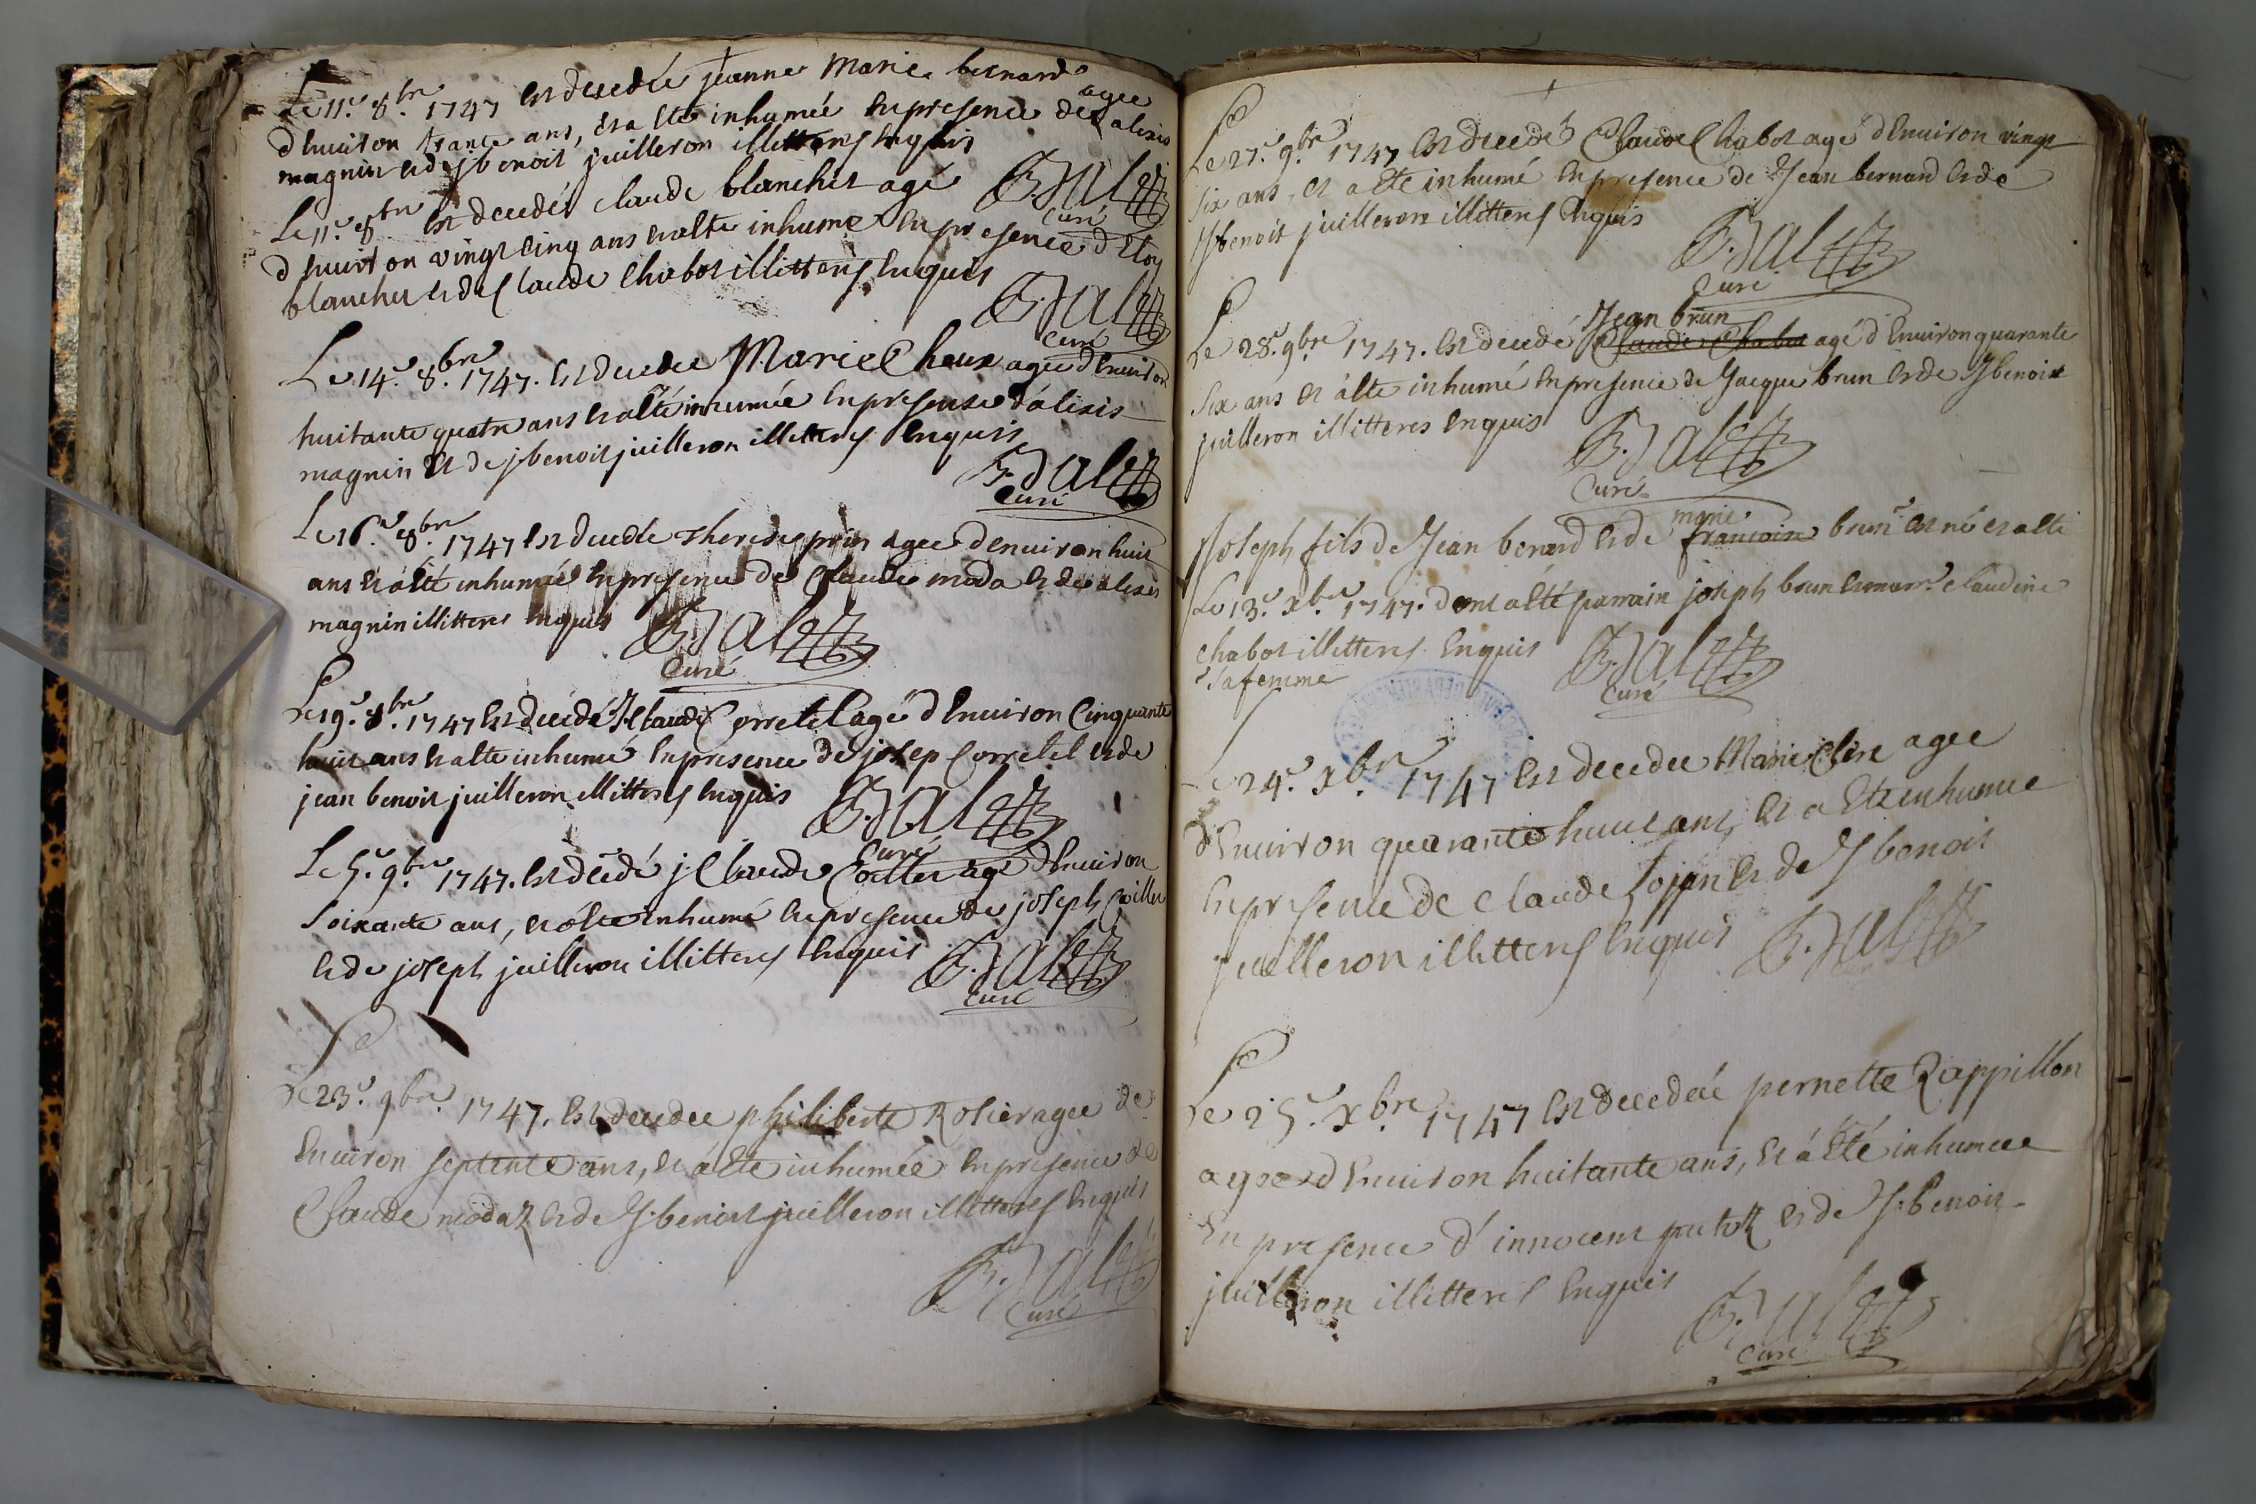 Le 11.e 8.bre 1747 est decedée jeanne Marie bernard agee
d'Enuiron trante ans, et a ete inhumée En presence de alexis
magnin et de j benoit juilleron illitteres Enquis
curé
Le 11.e 8bre est decedé claude blanchet agé
d'Enuiron vingt cinq ans et a ete inhumé En presence d'Eloy
blanchet et de Claude Chabot illitteres Enquis
curé
Le 14.e 8.bre 1747. Est decedee Marie Choux agée d'Enuiron
huitante quatre ans et a été inhumée En presense d'alexis
magnin et de j benoit juilleron illitteres Enquis
curé
Le 16.e 8.bre 1747 Est decedee therese prin agee d'enuiron huit
ans et a été inhumée En presence de Claude moda et de alexis
magnin illitteres Enquis
Curé
Le 19.e 8.bre 1747 Est decedé J. Claude Corretel agé d'Enuiron Cinquante
huit ans et a ete inhumé En presence de josep Corretel et de
jean benoit juilleron illitteres Enquis
curé
Le 5.e 9.bre 1747. Est decedé j. Claude Coillet agé d'Enuiron
Soixante ans, et a éte inhumé En presence de joseph Coillet
et de joseph juilleron illitteres Enquis
curé
Le 23.e 9bre. 1747. Est decedee philiberte Rosier agee de
Enuiron septente ans, et a ete inhumée En presence de
Claude modaz et de J. benoit juilleron illitteres Enquis
Curé
Le 27.e 9.bre 1747 Est decedé Claude Chabot agé d'Enuiron vingt
six ans, et a ete inhumé En presence de Jean bernard et de
J benoit juilleron illitteres Enquis
Curé
Jean brun
Le 28. 9bre 1747. Est decedé Claude Chabot agé d'Enuiron quarante
six ans et a éte inhumé En presence de Jacque brun et de J benoit
juilleron illitteres Enquis
Curé
marie
Joseph fils de Jean benard et de francoise brun est né et a été
Le 13.e x.bre 1747. dont a été parrain joseph brun et marr.e claudine
chabot illitteres Enquis
sa femme
Curé
Le 24.e xbre. 1747 Est decedee Marie Clere agee
d'Enuiron quarante huit ans, et a ete inhumee
En presence de claude et de J benoit
juilleron illitteres Enquis
Le 25.e xbre 1747 Est decedée pernette Rappillon
agee d'Enuiron huitante ans, et a été inhumee
En presence d'innocent et de J. benoit
juilleron illitteres Enquis
Curé